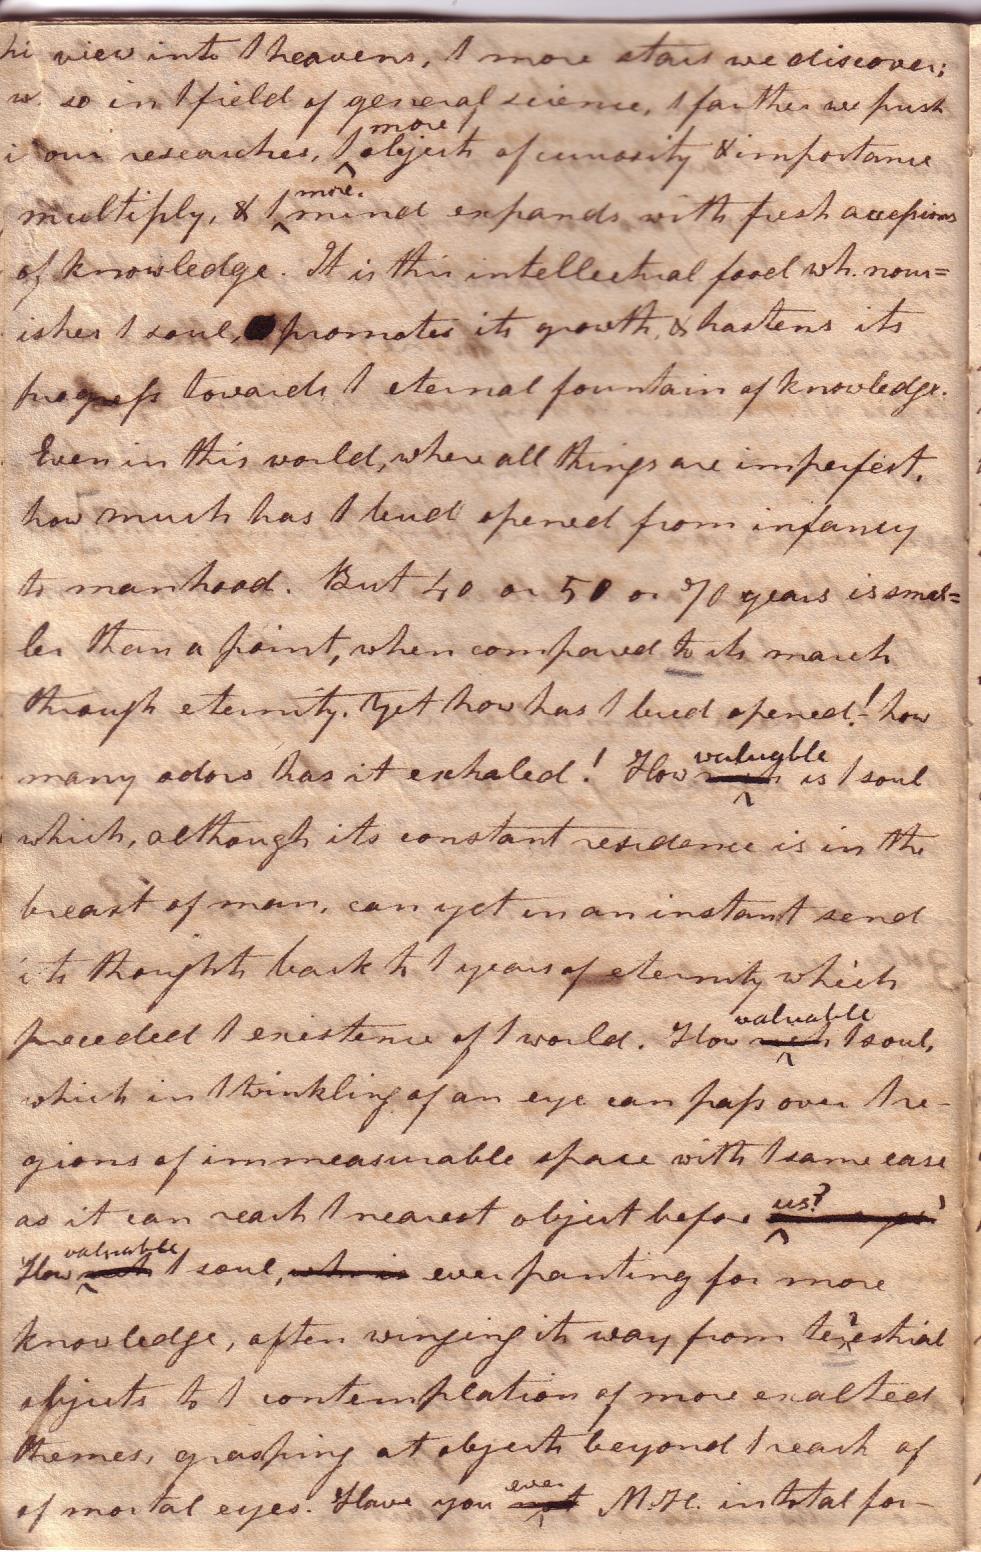 view into / heavens, / more stars we discover;
so in / field of general science, / farther we push
our researches, / more objects of curiosity & importance
multiply, & / more mind expands with fresh accessions
of knowledge. It is this intellectual food wh. nour=
ishes / soul, promotes its growth, & hastens its
progress towards / eternal fountain of knowledge.
Even in this world, where all things are imperfect,
how much has / bud opened from infancy
to manhood. But 40 or 50 or 70 years is smal=
ler than a point, when compared to its march
through eternity. Yet how has / bud opened! how
many odors has it exhaled! How valuable is / soul
which, although its constant residence is in the
breast of man, can yet in an instant send
its thoughts back to / years of eternity which
preceded / existence of / world. How valuable / soul,
which in / twinkling of an eye can pass over / re-
gions of immeasurable space with / same ease
as it can reach / nearest object before us?
How valuable / soul, ever panting for more
knowledge, often winging its way from terestrial
objects to / contemplation of more exalted
themes, grasping at objects beyond / reach of
of mortal eyes. Have you ever M.H. in total for-